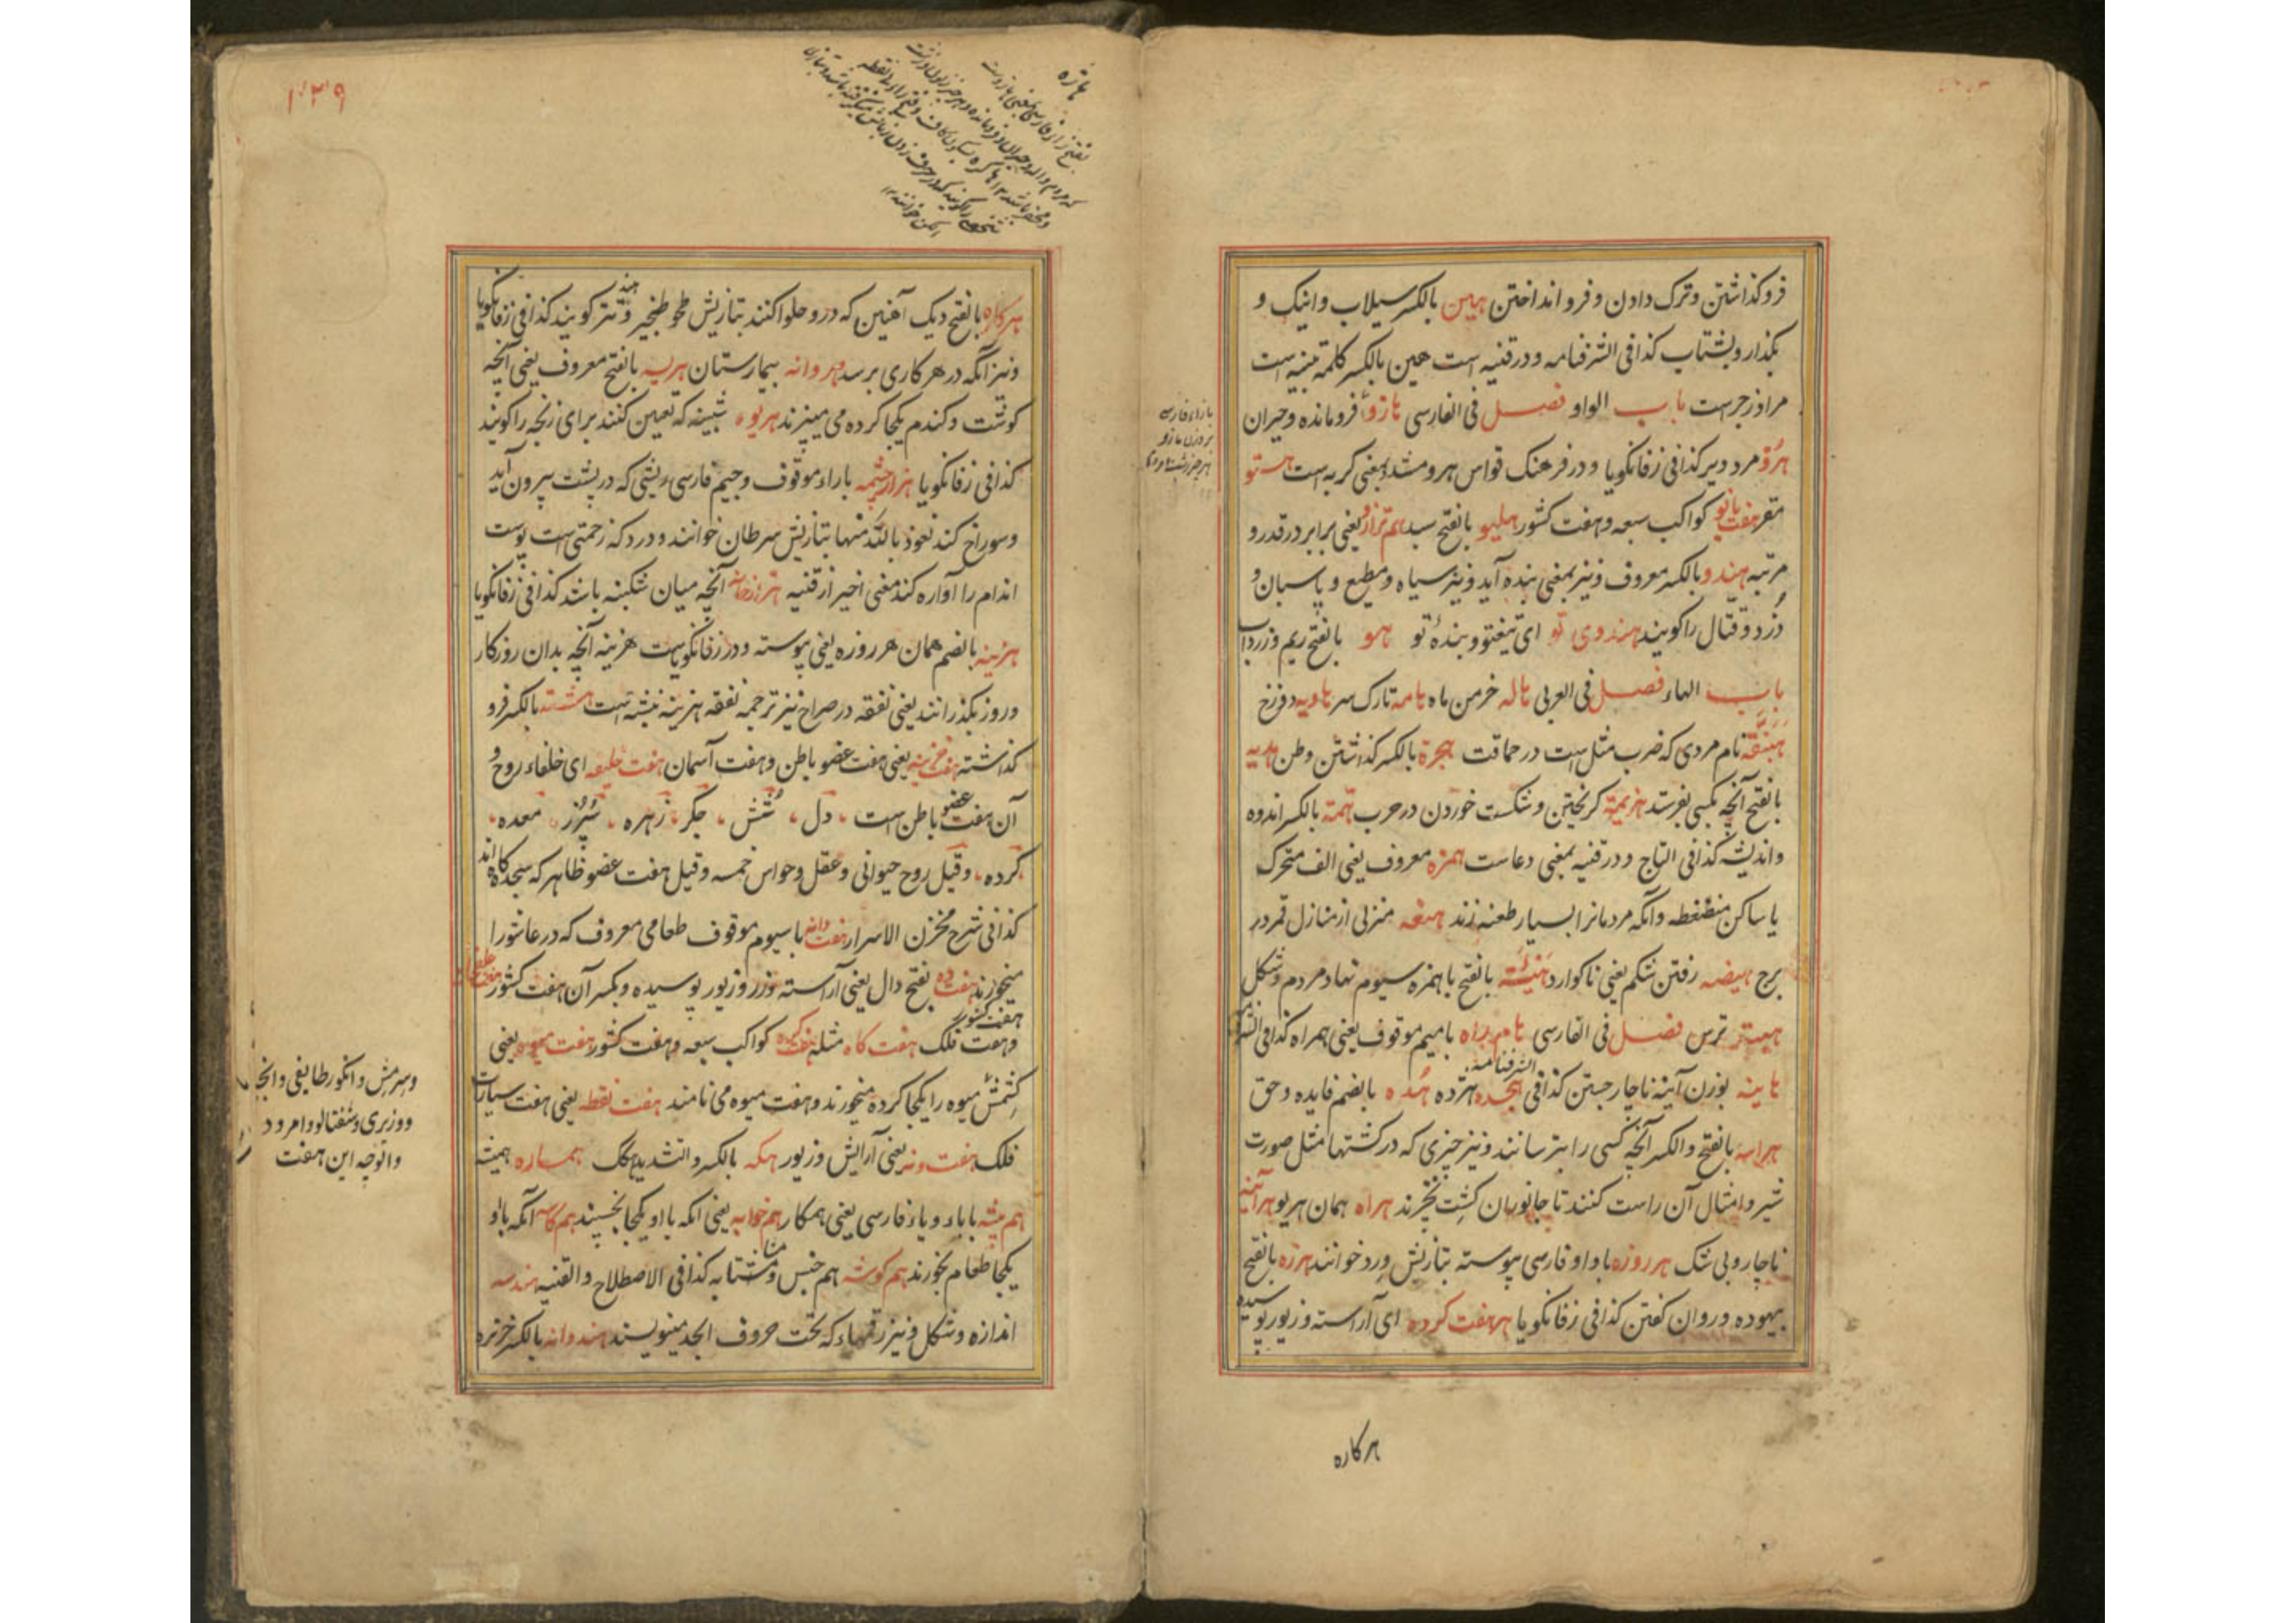 فروکذاشتن وترک دادن وفرو انداختن هین بالکسر سیلاب واینک و
بکذار وبشتاب کذا فی الشرفنامه ودر قنیه است هین بالکسر کلمة تنبیه است
مراد زجرست باب الواو فصل فی الفارسی هاژو فرومانده وحیران
هرو مرد دیر کذا فی زفانکویا ودر فرهنک قواس هرو مشدد بمعنی کربه است هستو
مقر هفت بانو کواکب سبعه وهفت کشور هلیو بالفتح سبد هم ترازو یعنی برابر در قدر و
مرتبه هندو بالکسر معروف ونیز بمعنی بنده آید ونیز سیاه ومطیع وپاسبان و
دزد وقتال را کویند هندوی تو ای تیغ تو وبندۀ تو هو بالفتح ریم وزرداب
باب الهاء فصل فی العربی هاله خرمن ماه هامه تارک سر هاویه دوزخ
هبنقه نام مردی که ضرب مثل است در حماقت هجرة بالکسر کذاشتن وطن هدیه
بالفتح آنچه بکسی بفرستند هزیمة کریختن وشکست خوردن در حرب همة بالکسر اندوه
واندیشه کذا فی التاج ودر قنیه بمعنی دعاست همزه معروف یعنی الف متحرک
یا ساکن منضغطه وانکه مردمانرا بسیار طعنه زند هنعه منزلی از منازل قمر در
برج هیضه رفتن شکم یعنی ناکوارد هیئة بالفتح با همزه سیوم نهاد مردم وشکل
ترس فصل فی الفارسی هام راه با میم موقوف یعنی همراه کذا فی
الشرفنامه
هاینه بوزن آینه ناچار جستن کذا فی هجده هژده هده بالضم فایده وحق
هراسه بالفتح والکسر آنچه کسی را بترسانند ونیز چیزی که در کشتها مثل صورت
شیر وامثال آن راست کنند تا جانوران کشت نخرند هراه همان هریو هرآینه
ناچار وبی شک هرروزه باواو فارسی پیوسته بتازیش ورد خوانند هرزه بالفتح
بیهوده وروان کفتن کذا فی زفانکویا هرهفت کرده ای آراسته وزیور پوسیده
هرکاره
بازاء فارسی
بر وزن بازو
۱۰۳۹
هاژه
هرکاره بالفتح دیک آهنین که درو حلوا کنند بتازیش طنجیر وهند کویند کذا فی زفانکویا
ونیز آنکه در هر کاری برسد هروانه بیمارستان هریسه بالفتح معروف یعنی آنچه
کوشت وکندم یکجا کرده می پزند هریوه شبینه که تعین کنند برای زنجه را کویند
کذا فی زفانکویا هزارچشمه باراء موقوف وجیم فارسی ریشی که در پشت بیرون آید
وسوراخ کند نعوذ بالله منها بتازیش سرطان خوانند ودرد که زحمتی است پوست
اندام را آواره کند معنی اخیر از قنیه هزارخانه آنچه میان شکنبه باشد کذا فی زفانکویا
هزینه بالضم همان هرروزه یعنی پیوسته ودر زفانکویاست هزینه آنچه بدان روزکار
وروز بکذرانند یعنی نفقه در صراح نیز ترجمه نفقه هزینه نبشته است هشته بالکسر فرو
کذاشته هفت خزینه یعنی هفت عضو باطن وهفت آسمان هفت خلیفه ای خلفاء روح و
آن هفت عضو باطن است ، دل ، شش ، جکر ، زهره ، سپرز ، معده ،
کرده ، وقیل روح حیوانی وعقل وحواس خمسه وقیل هفت عضو ظاهر که سجدکاه اند
کذا فی شرح مخزن الاسرار هفت دانه با سیوم موقوف طعامی معروف که در عاشورا
میخورند هفت ده بفتح دال یعنی آراسته وزر وزیور پوسیده وبکسر آن هفت کشور
هفت کشور
وهفت فلک هفت کاه مثله هفت کرده کواکب سبعه وهفت کشور هفت میوه یعنی
کشمش میوه را یکجا کرده میخورند وهفت میوه می نامند هفت نقطه یعنی هفت سیارات
فلک هفت ونه یعنی آرایش وزیور هکه بالکسر والتشدید هکک همساره همیشه
هم پیشه با باء ویاء فارسی یعنی همکار هم خوابه یعنی انکه با او یکجا بخسپند هم کاسه آنکه با او
یکجا طعام بخورند هم کوشه هم جنس ومشابه کذا فی الاصطلاح والقنیه هندسه
اندازه وشکل ونیز رقمهاء که تحت حروف ابجد مینویسند هندوانه بالکسر خربزه
وسرمش وانکور طایفی وانجیر
وشفتالو وامرود
والوچه این هفت